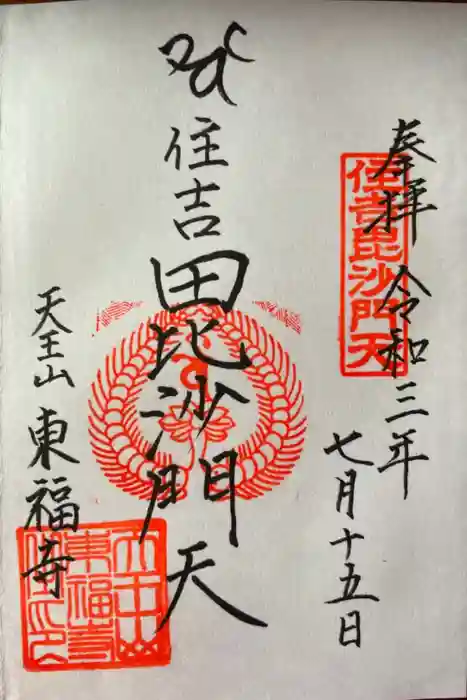 奉拝 令和三年
七月十五日
住吉毘沙門天
住吉毘沙門天
天王山 東福寺